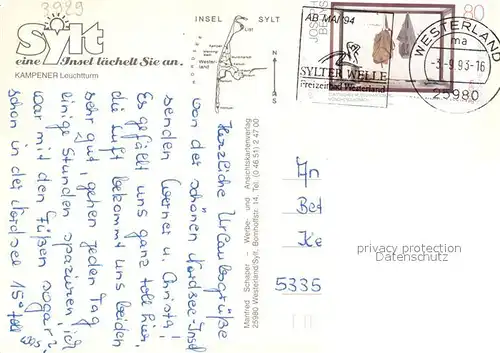 3929
Sylt
eine Insel lächelt Sie an.
KAMPENER Leuchtturm
INSEL SYLT
List
Kampen
Westerland
N
S
Herzliche Urlaubsgrüße
von der schönen Nordsee-Insel
senden Werner u. Christa!
Es gefällt uns ganz toll hier,
die Luft bekommt uns beiden
sehr gut, gehen jeden Tag
einige Stunden spazieren, ich
war mit den Füßen sogar
schon in der Nordsee 15° toll
Manfred Schaper - Werbe- und Ansichtskartenverlag
25980 Westerland/Sylt, Bomhoffstr. 14, Tel. (0 46 51) 2 47 00
AB MAI 94
SYLTER WELLE
Freizeitbad Westerland
JOSEPH BEUYS
80
WESTERLAND
ma
-3.-9.93-16
25980
An
Bet
Ke
5335
privacy protection
Datenschutz